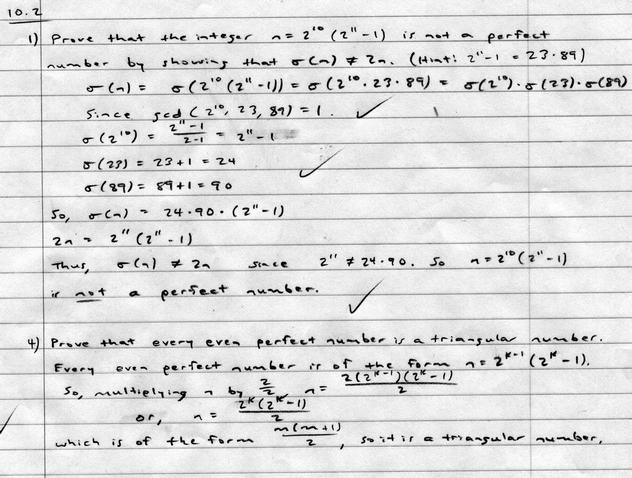 10.2
1) Prove that the integer n = 2¹⁰(2¹¹-1) is not a perfect
number by showing that σ(n) ≠ 2n. (Hint: 2¹¹-1 = 23·89)
σ(n) = σ(2¹⁰(2¹¹-1)) = σ(2¹⁰·23·89) = σ(2¹⁰)·σ(23)·σ(89)
Since gcd(2¹⁰, 23, 89) = 1.
σ(2¹⁰) = (2¹¹-1)/(2-1) = 2¹¹-1
σ(23) = 23+1 = 24
σ(89) = 89+1 = 90
So, σ(n) = 24·90·(2¹¹-1)
2n = 2¹¹(2¹¹-1)
Thus, σ(n) ≠ 2n since 2¹¹ ≠ 24·90. So n = 2¹⁰(2¹¹-1)
is not a perfect number.
4) Prove that every even perfect number is a triangular number.
Every even perfect number is of the form n = 2ᴷ⁻¹(2ᴷ-1).
So, multiplying n by 2/2, n = 2(2ᴷ⁻¹)(2ᴷ-1)/2
or, n = 2ᴷ(2ᴷ-1)/2
which is of the form m(m+1)/2, so it is a triangular number.